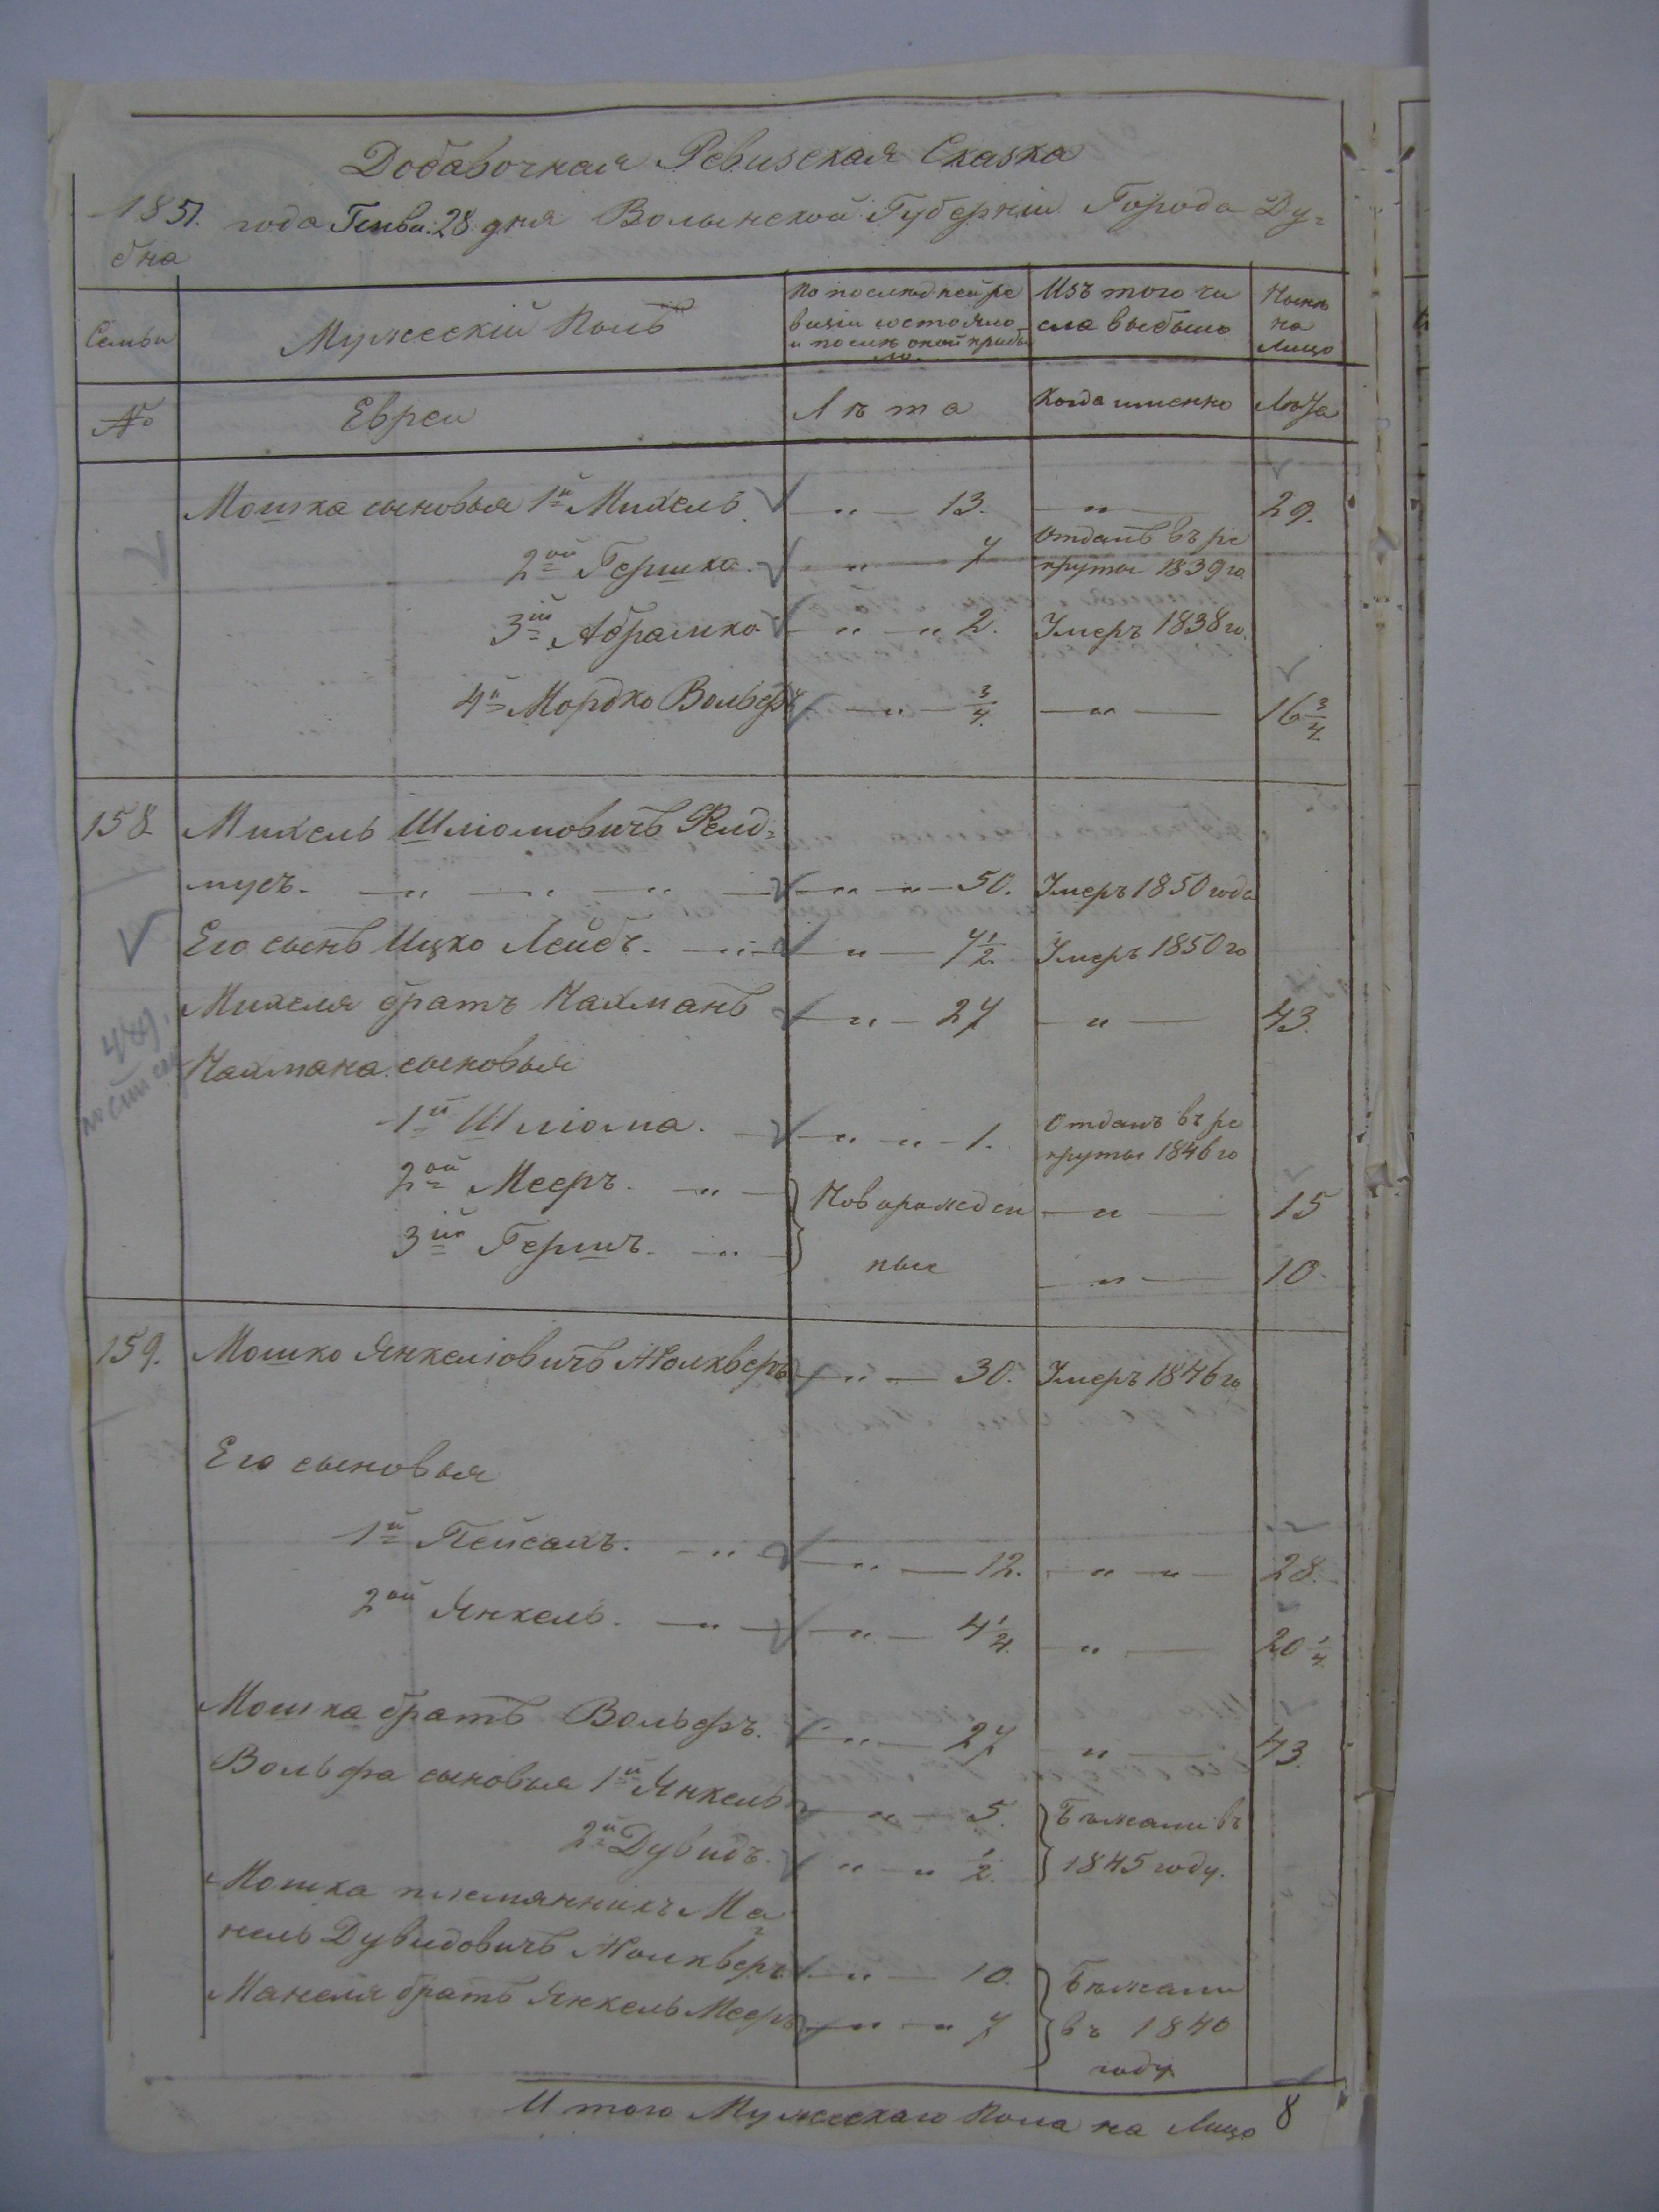 Добавочная Ревизская Сказка
1851. года Генва: 28 дня Волынской Губерніи Города Ду=
бна
Семьи
Мужескій Полъ
По последней ре
визіи состояло
и после оной прибы
ло.
Изъ того чи
сла выбыло
Ныне
на
лицо
№
Евреи
Лѣта
Когда именно
Лѣта
Мошка сыновья 1й Михель " 13. " 29.
2ой Гершко. " 7 отданъ въ ре
круты 1839 го
3ій Абрамко " " 2. Умеръ 1838 го.
4й Мордко Вольфъ " 3/4. " 16 3/4.
158 Михель Шліомовичъ
" " " " " 50. Умеръ 1850 года
Его сынъ Ицко Лейбъ. " " 7 1/2. Умеръ 1850 го
Михеля братъ Нахманъ " 27 " 43.
Нахмана сыновья
1й Шліома. " " 1. Отданъ въ ре
круты 1846 го
2ой Мееръ. " Новорожден " 15
3ій Гершъ. " ные " 10.
159. Мошко Янкеліовичъ " 30. Умеръ 1846 го
Его сыновья
1й Пейсахъ. " " 12. " " 28.
2ой Янкель. " " 4 1/4. " 20 1/4.
Мошка братъ Вольфъ. " 27 " 43.
Вольфа сыновья 1й Янкель " 5. Бѣжали въ
2й Дувидъ. " " 1/2. 1845 году.
Мошка племянникъ Ма
нель Дувидовичъ " 10. Бѣжали
Манеля братъ Янкель Мееръ " " 7 въ 1840
году
Итого Мужескаго Пола на Лицо 8